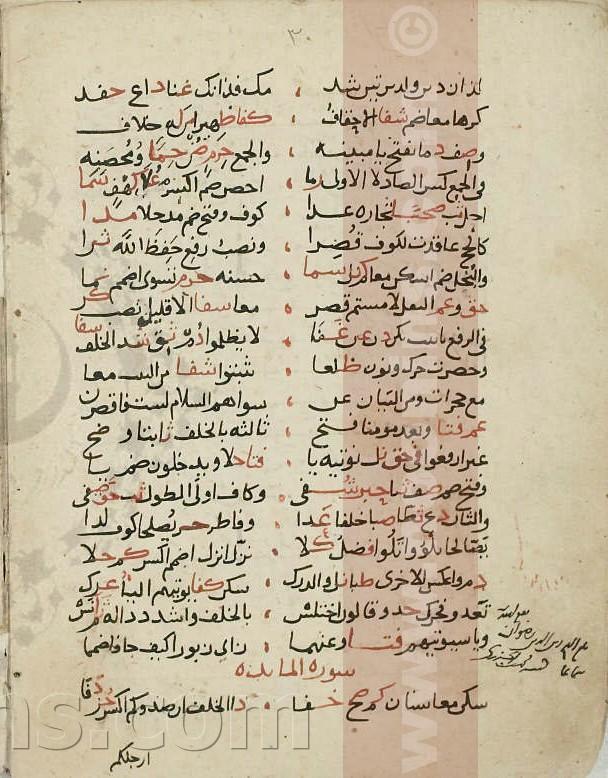 لذان ذين ولذين تين شد ، مك فذانك غنا داع حفد
كرها معا ضم شفا الاحقاف ، كفا ظهيرا من له خلاف
وصف دما بفتح يا مبينه ، والجمع حرم صن حما ومحصنه
فى الجمع كسر الصاد لا الاولى رما ، احصن ضم اكسر علا كهف سما
احل ثب صحبا تجارة عدا ، كوف وفتح ضم مدخلا مدا
كالحج عاقدت لكوف قصرا ، ونصب رفع حفظ الله ثرا
والبخل ضم اسكن معا كم نل سما ، حسنه حرم تسوى اضمم نما
حق وعم الثقل لامستم قصر ، معا شفا الا قليلا نصب كر
فى الرفع تانيث تكن دن عن غفا ، لا يظلموا دم ثق شذ الخلف شفا
وحصرت حرك ونون ظلعا ، تثبتوا شفا من الثبت معا
مع حجرات ومن البيان عن ، سواهم السلام لست فاقصرن
عم فتا وبعد مومنا فتح ، ثالثه بالخلف ثابتا وضح
غير ارفعوا فى حق نل نوتيه يا ، فتا حلا ويدخلون ضم يا
وفتح ضم صف ثنا حبر شفى ، وكاف اولى الطول ثب حق صفى
والثان دع ثطا صبا خلفا غدا ، وفاطر حز يصلحا كوف لدا
يصالحا تلووا تلوا فضل كلا ، نزل انزل اضمم اكسر كم حلا
دم واعكس الاخرى ظبا نل والدرك ، سكن كفا يوتيهم الياء عرك
تعدوا فحرك جد وقالون اختلس ، بالخلف واشدد داله ثم انس
ويا سيوتيهم فتا وعنهما ، زاى زبورا كيف جا فاضمما
سورة المائده
سكن معا شنان كم صح خفا ، ذا الخلف ان صدوكم اكسر حز دفا
ارجلكم
ns.com
www.